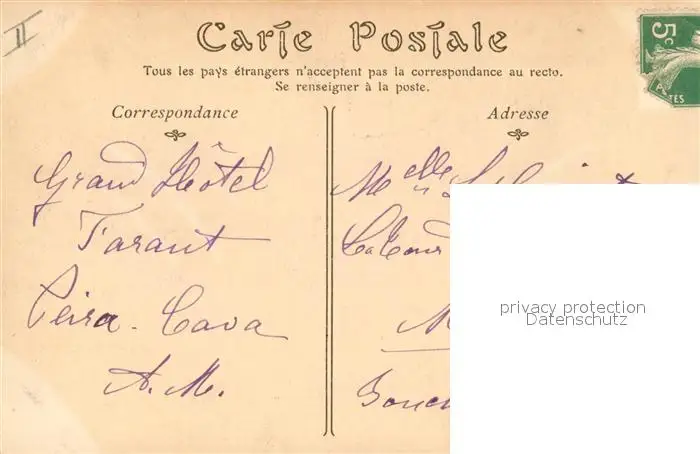 II
Carte Postale
5c
Tous les pays étrangers n'acceptent pas la correspondance au recto.
Se renseigner à la poste.
Correspondance
Adresse
Grand Hôtel
Tarant
Peira-Cava
A.M.
Melle
privacy protection
Datenschutz